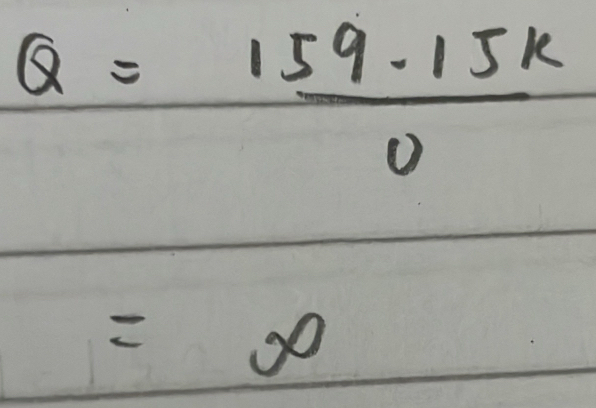 Q = 159.15k
0
= ∞